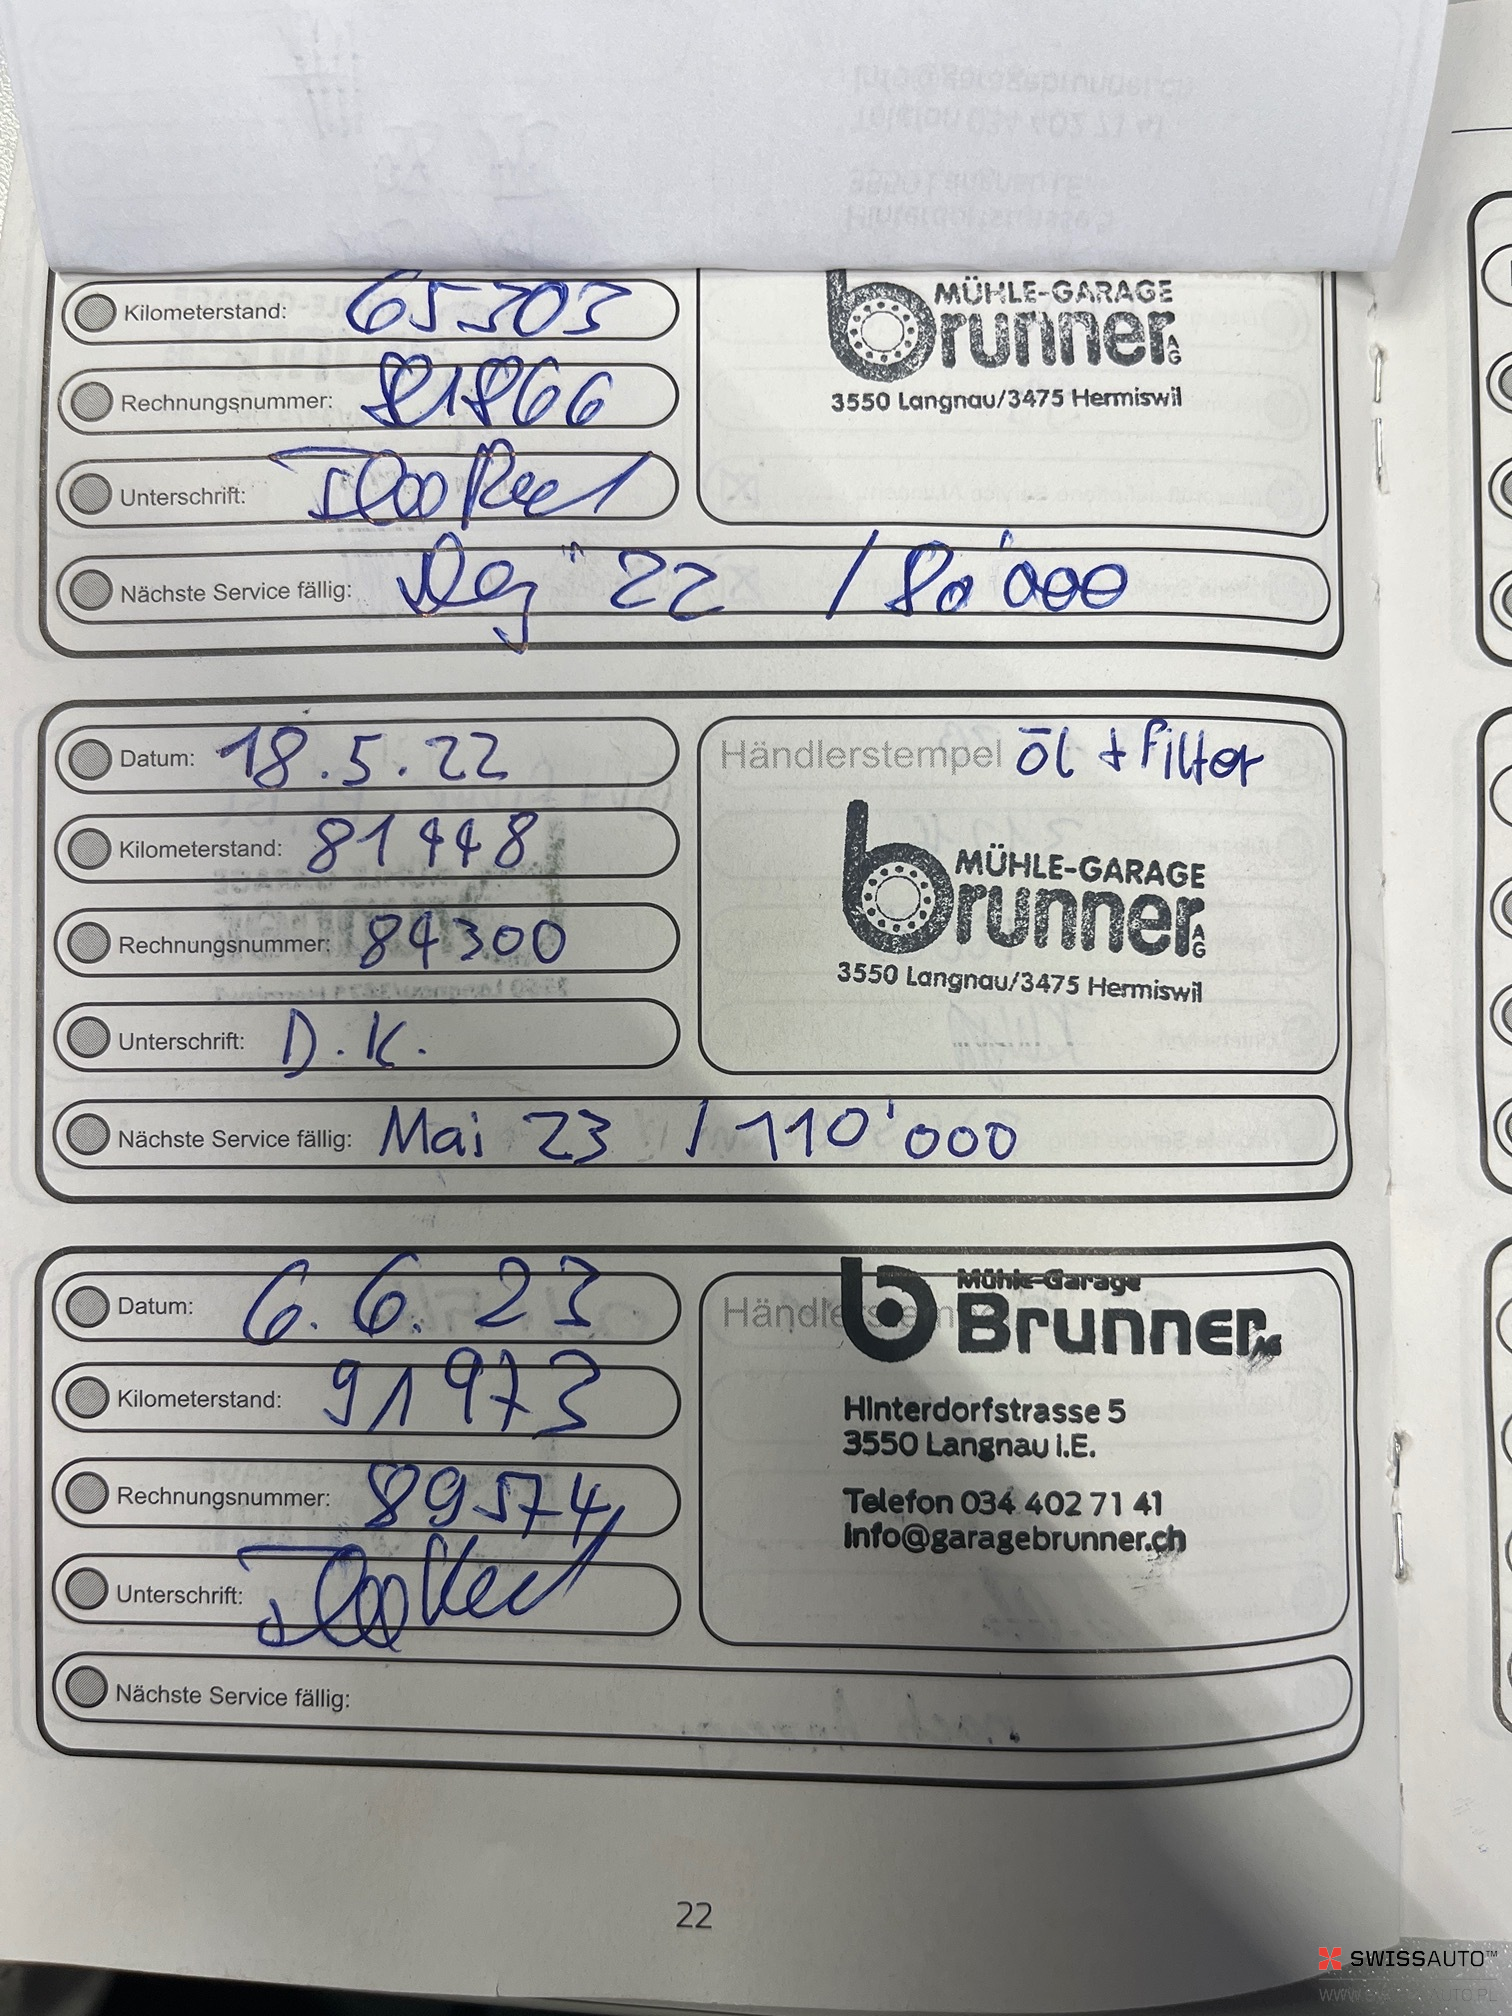 Kilometerstand: 65303
MÜHLE-GARAGE
brunner AG
3550 Langnau/3475 Hermiswil
Rechnungsnummer: 81866
Unterschrift:
Nächste Service fällig: 22 / 80'000
Datum: 18.5.22
Händlerstempel öl + Filter
Kilometerstand: 81448
MÜHLE-GARAGE
brunner AG
3550 Langnau/3475 Hermiswil
Rechnungsnummer: 84300
Unterschrift: D.K.
Nächste Service fällig: Mai 23 / 110'000
Datum: 6.6.23
Händlerstempel
Mühle-Garage
Brunner AG
Kilometerstand: 91973
Hinterdorfstrasse 5
3550 Langnau i.E.
Rechnungsnummer: 89574
Telefon 034 402 71 41
info@garagebrunner.ch
Unterschrift:
Nächste Service fällig:
22
SWISSAUTO™
WWW.SWISSAUTO.PL